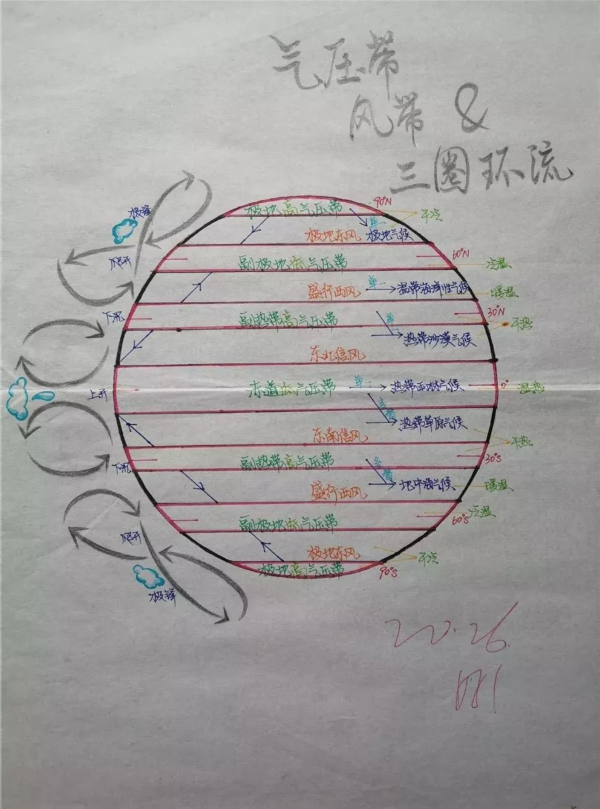 气压带
风带 &
三圈环流
90°N
极地高气压带
干冷
单一
极锋
极地东风
极地气候
爬升
60°N
副极地低气压带
冷湿
盛行西风
单一
温带海洋性气候
暖湿
下沉
副热带高气压带
30°N
干热
单一
热带沙漠气候
东北信风
上升
赤道低气压带
单一
热带雨林气候
0°
湿热
交替
热带草原气候
东南信风
干热
下沉
副热带高气压带
30°S
交替
盛行西风
地中海气候
暖湿
副极地低气压带
60°S
冷湿
爬升
极地东风
干冷
极地高气压带
90°S
极锋